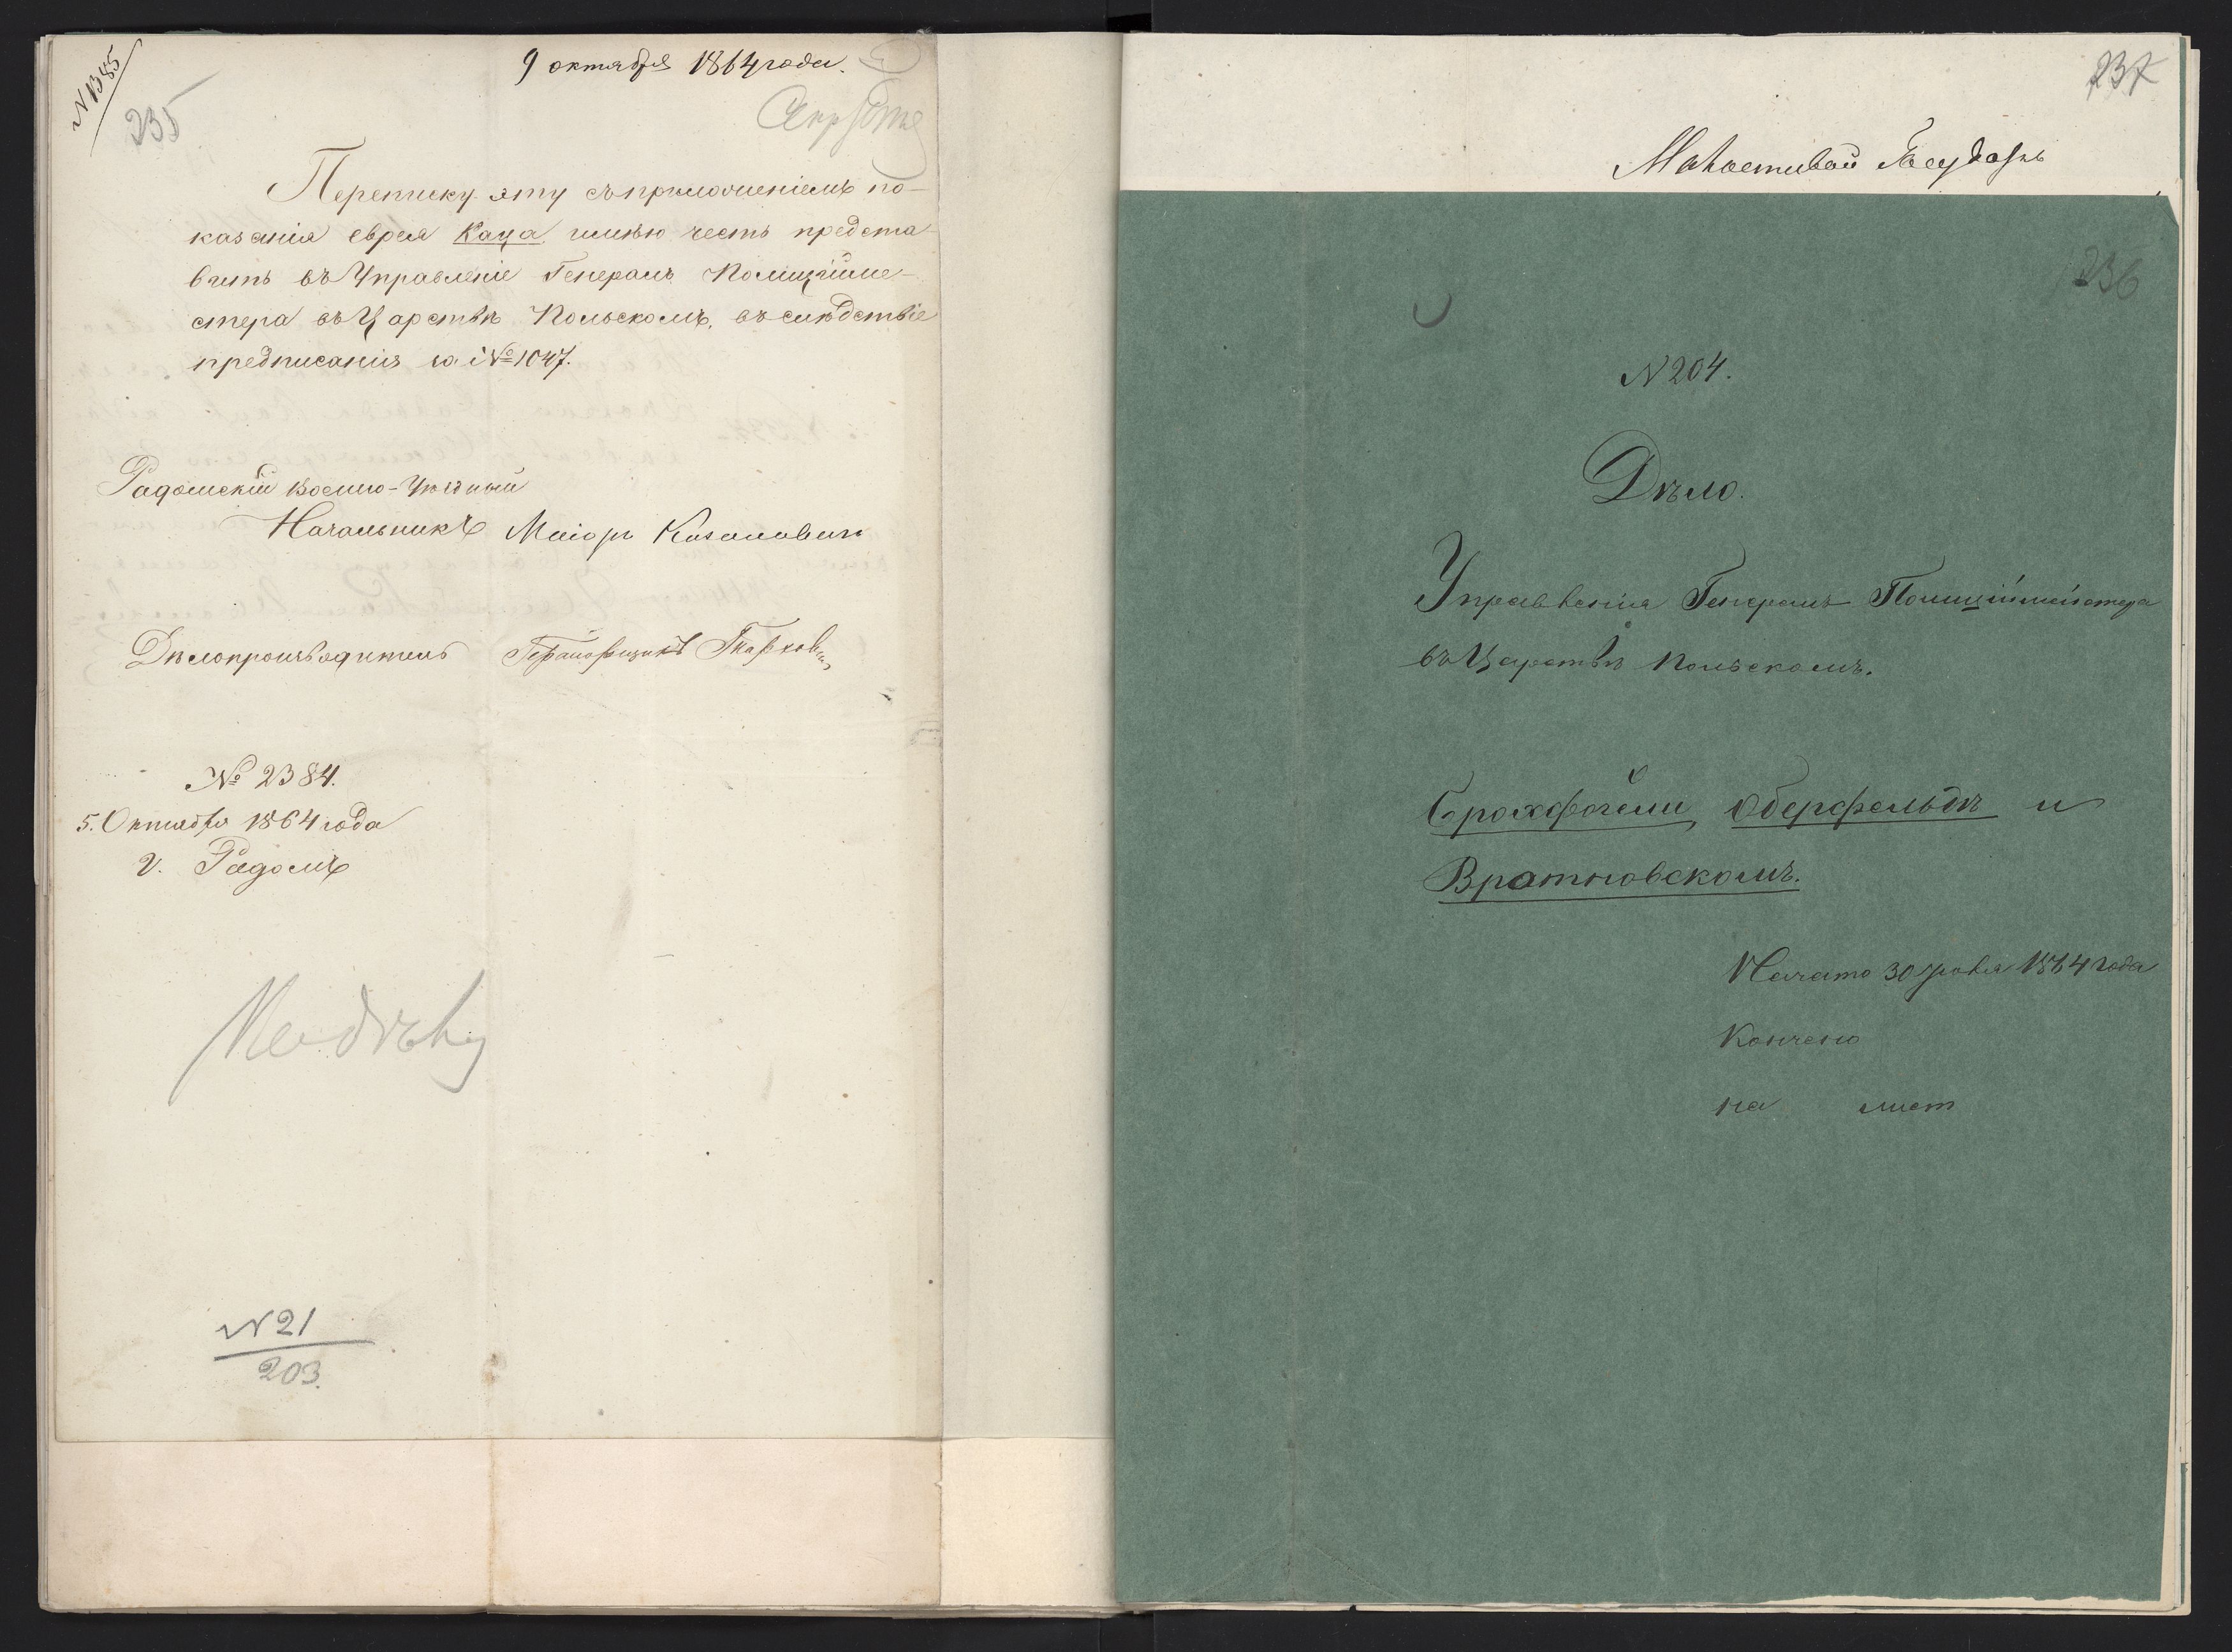 N 1385
9 октября 1864 года.
235
Переписку эту съ приложеніемъ по-
казанія еврея Каца имѣю честь предста-
вить въ Управленіе Генералъ Полиціймей-
стера въ Царствѣ Польскомъ, въ слѣдствіе
предписанія за № 1047.
Радомскій Военно-Уѣздный
Начальникъ Маіоръ
Дѣлопроизводитель
№ 2384.
5. Октября 1864 года
г. Радомъ
N 21
203.
237
Милостивый Государь
236
N 204.
Дѣло.
Управленія Генералъ Полиціймейстера
въ Царствѣ Польскомъ.
Оберфельдѣ и
Вратновскомъ.
Начато 30 1864 года
Кончено
на лист